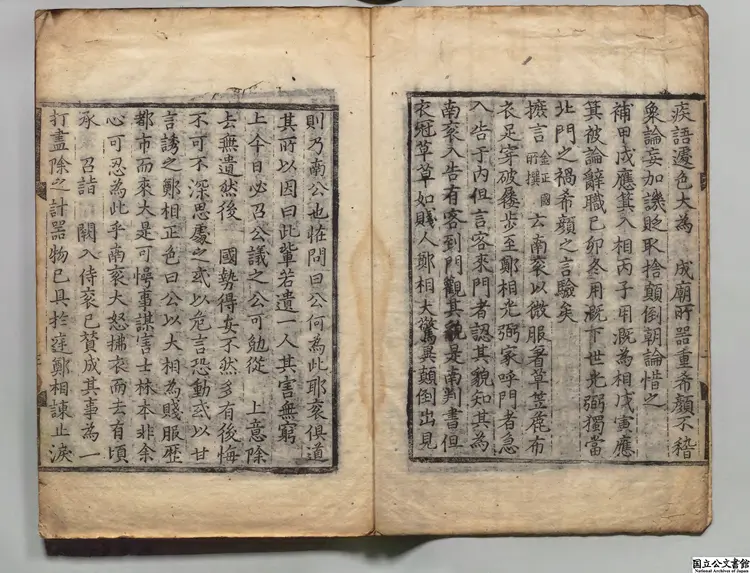 疾語遽色大為　成廟所器重希顔不稽
衆論妄加譏貶取捨顛倒朝論惜之
補甲戌應箕入相丙子用漑為相戊寅應
箕被論辭職己卯冬用漑下世光弼獨當
北門之禍希顔之言驗矣
摭言金正國所撰云南衮以微服著草笠麄布
衣足穿破屨步至鄭相光弼家呼門者急
入告于内但言客來門者認其貌知其為
南衮入告有客到門觀其貌是南判書但
衣冠草草如賤人鄭相大驚異顛倒出見
則乃南公也怪問曰公何為此耶衮俱道
其所以因曰此輩若遺一人其害無窮
上今日必召公議之公可勉從　上意除
去無遺然後　國勢得安不然多有後悔
不可不深思處之或以危言恐動或以甘
言誘之鄭相正色曰公以大相為賤服歴
都市而來大是可愕事謀害士林本非余
心可忍為此乎南衮大怒拂衣而去有頃
承　召詣　闕入侍衮已賛成其事為一
打盡除之計器物已具於庭鄭相諫止淚
国立公文書館
National Archives of Japan